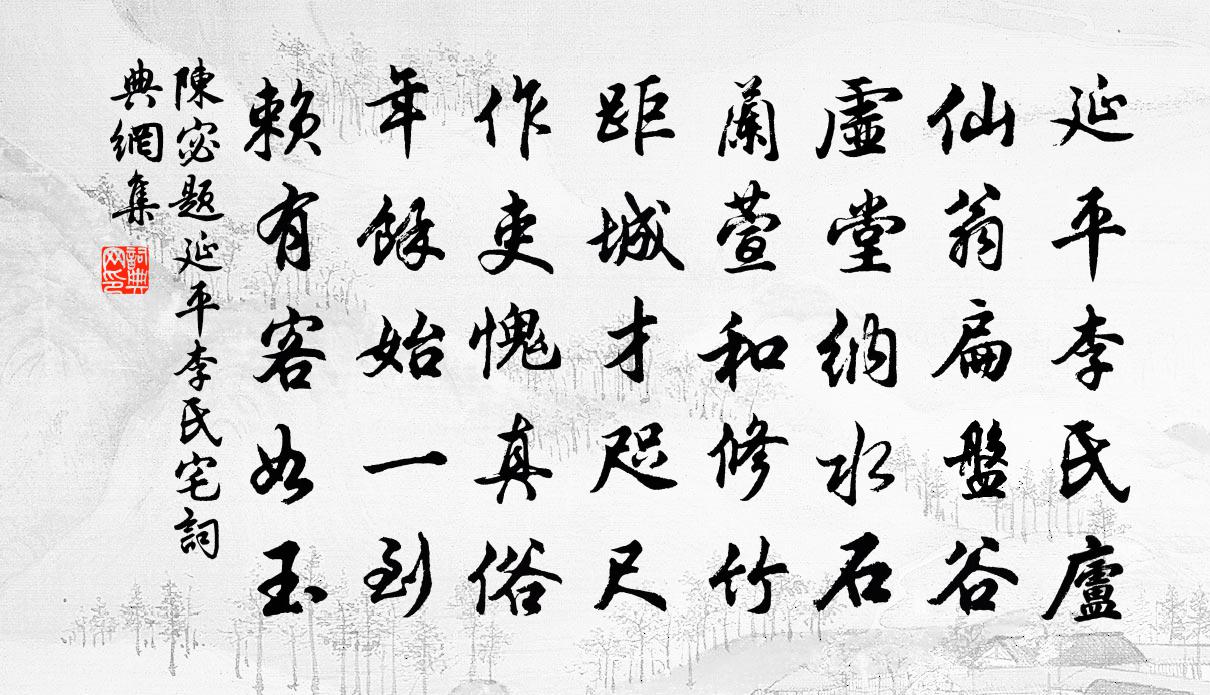 延平李氏廬
仙翁扁盤谷
虛堂納水石
蘭萱和修竹
距城才咫尺
作吏愧真俗
年餘始一到
賴有客如玉
陳宓題延平李氏宅詞
典網集
詞典網印